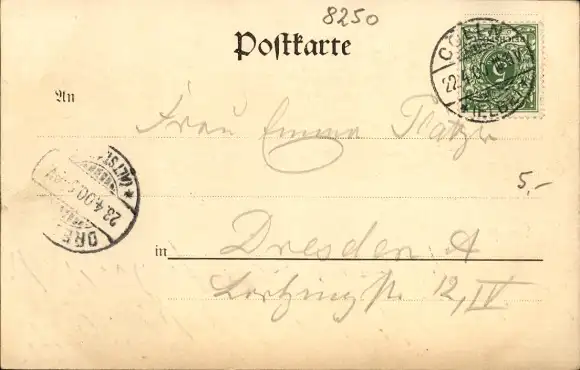 8250
Postkarte
CÖLLN
22.4.00
(ELBE)
An Frau Emma
5,-
DRE
ALTST.
23.4.00
in Dresden A
Lortzingstr. 12, IV